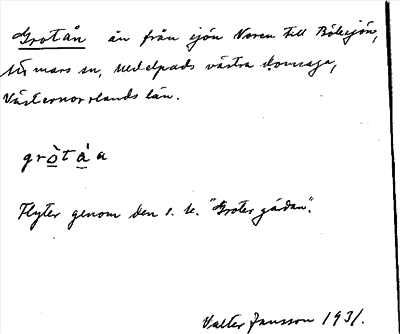 Grotån ån från sjön Noren till Bölesjön,
mars sn, Medelpads västra domsaga,
Västernorrlands län.
gròt å̀a
Flyter genom den s. k. "Groter gårdan".
Valter Jansson 1931.